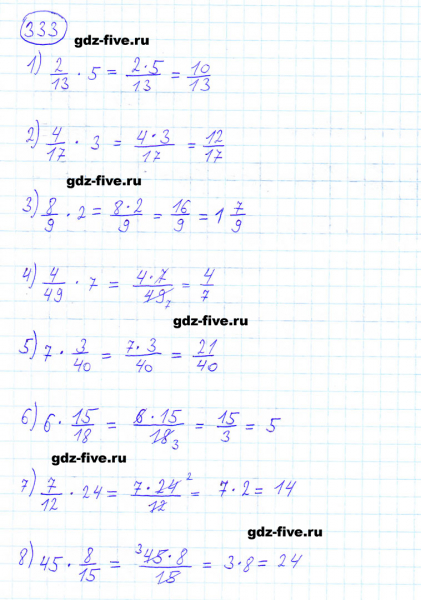 333
gdz-five.ru
1) 2/13 · 5 = 2·5/13 = 10/13
2) 4/17 · 3 = 4·3/17 = 12/17
gdz-five.ru
3) 8/9 · 2 = 8·2/9 = 16/9 = 1 7/9
4) 4/49 · 7 = 4·7/49 7 = 4/7
gdz-five.ru
5) 7 · 3/40 = 7·3/40 = 21/40
6) 6 · 15/18 = 6·15/18 3 = 15/3 = 5
gdz-five.ru
7) 7/12 · 24 = 7·24 2/12 = 7·2 = 14
gdz-five.ru
8) 45 · 8/15 = 3 45·8/15 = 3·8 = 24